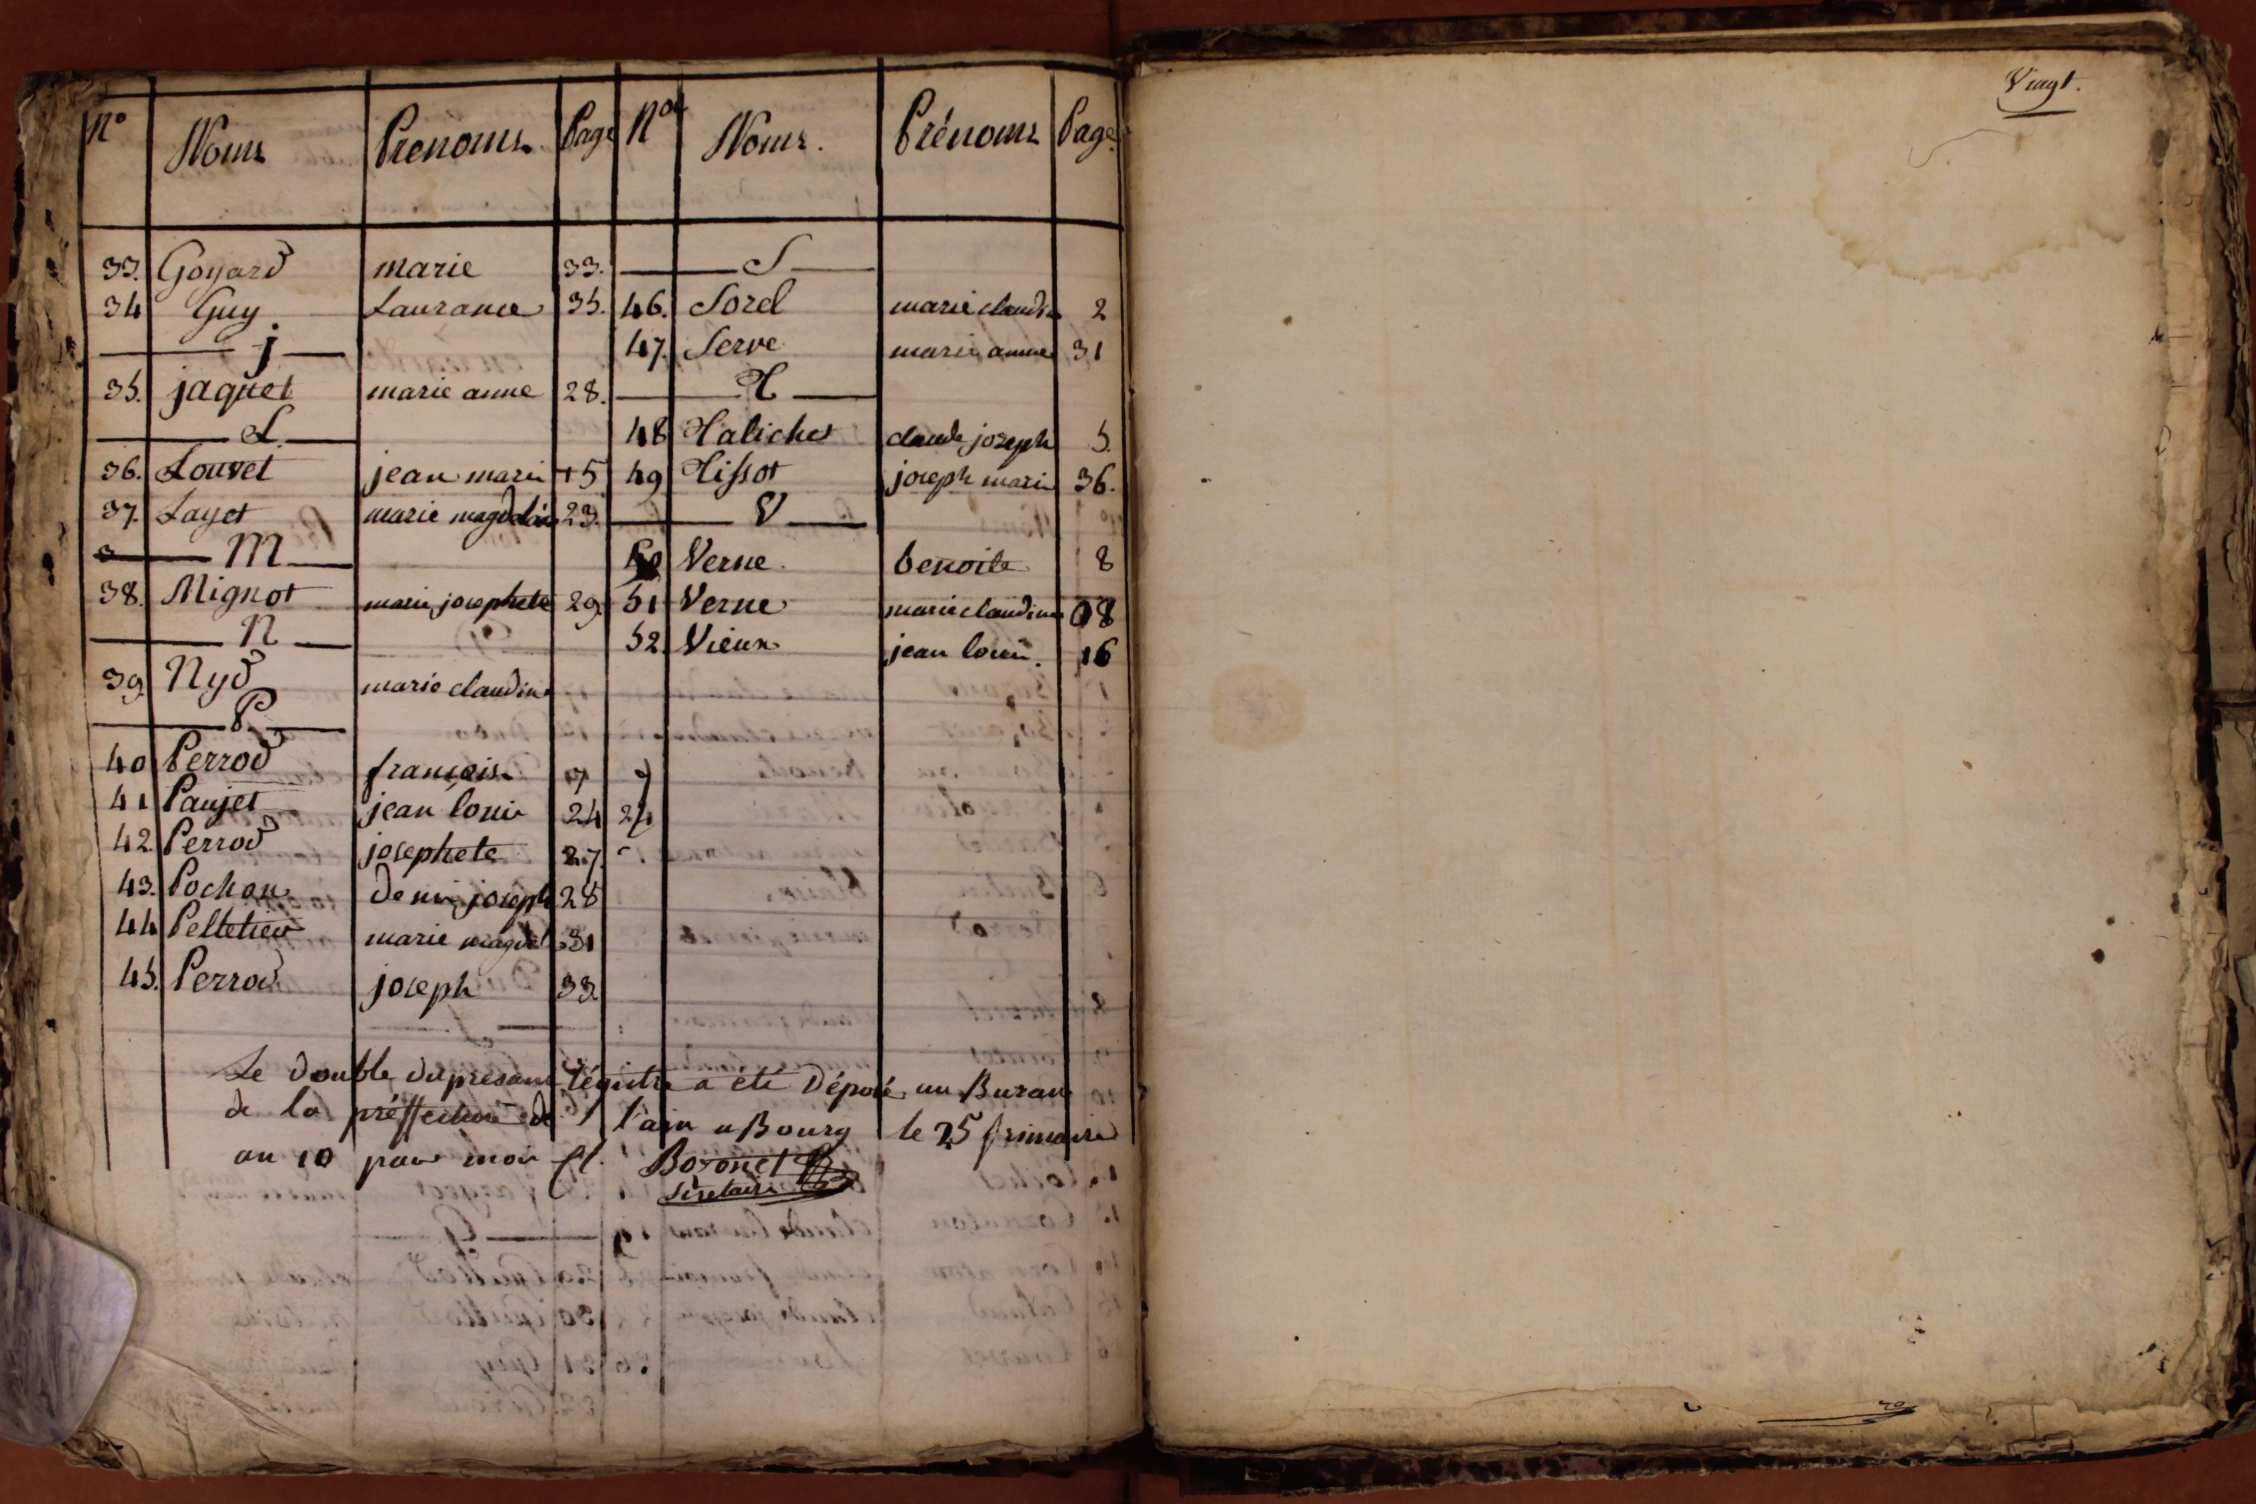 Vingt.
N° Noms Prenoms Page
33. Goyard marie 33.
34 Guy Laurance 35.
j
35. jaquet marie anne 28.
L
36. Louvet jean marie 15
37. Layet marie magdelai 23.
M
38. Mignot marie josephete 29
N
39 Nyd marie claudine
P
40 Perrod francois 7
41 Paujet jean louis 24
42. Perrod josephete 27.
43. Pochon denis joseph 28
44 Pelletier marie magdel 31
45. Perrod joseph 33.
Nos Noms. Prénoms Page
S
46. Sorel marie claudin 2
47. Serve marie anne 31
T
48 Talichet claude joseph 5.
49 Tissot joseph marie 36.
V
50 Verne benoite 8
51 Verne marie claudine 8
52 Vieux jean louis. 16
7
24
Le double du presant régistre a été déposé au Burau
de la préffecture de l'ain a Bourg le 25 frimaire
an 10 par moi
Bozonet
Sécretaire
20